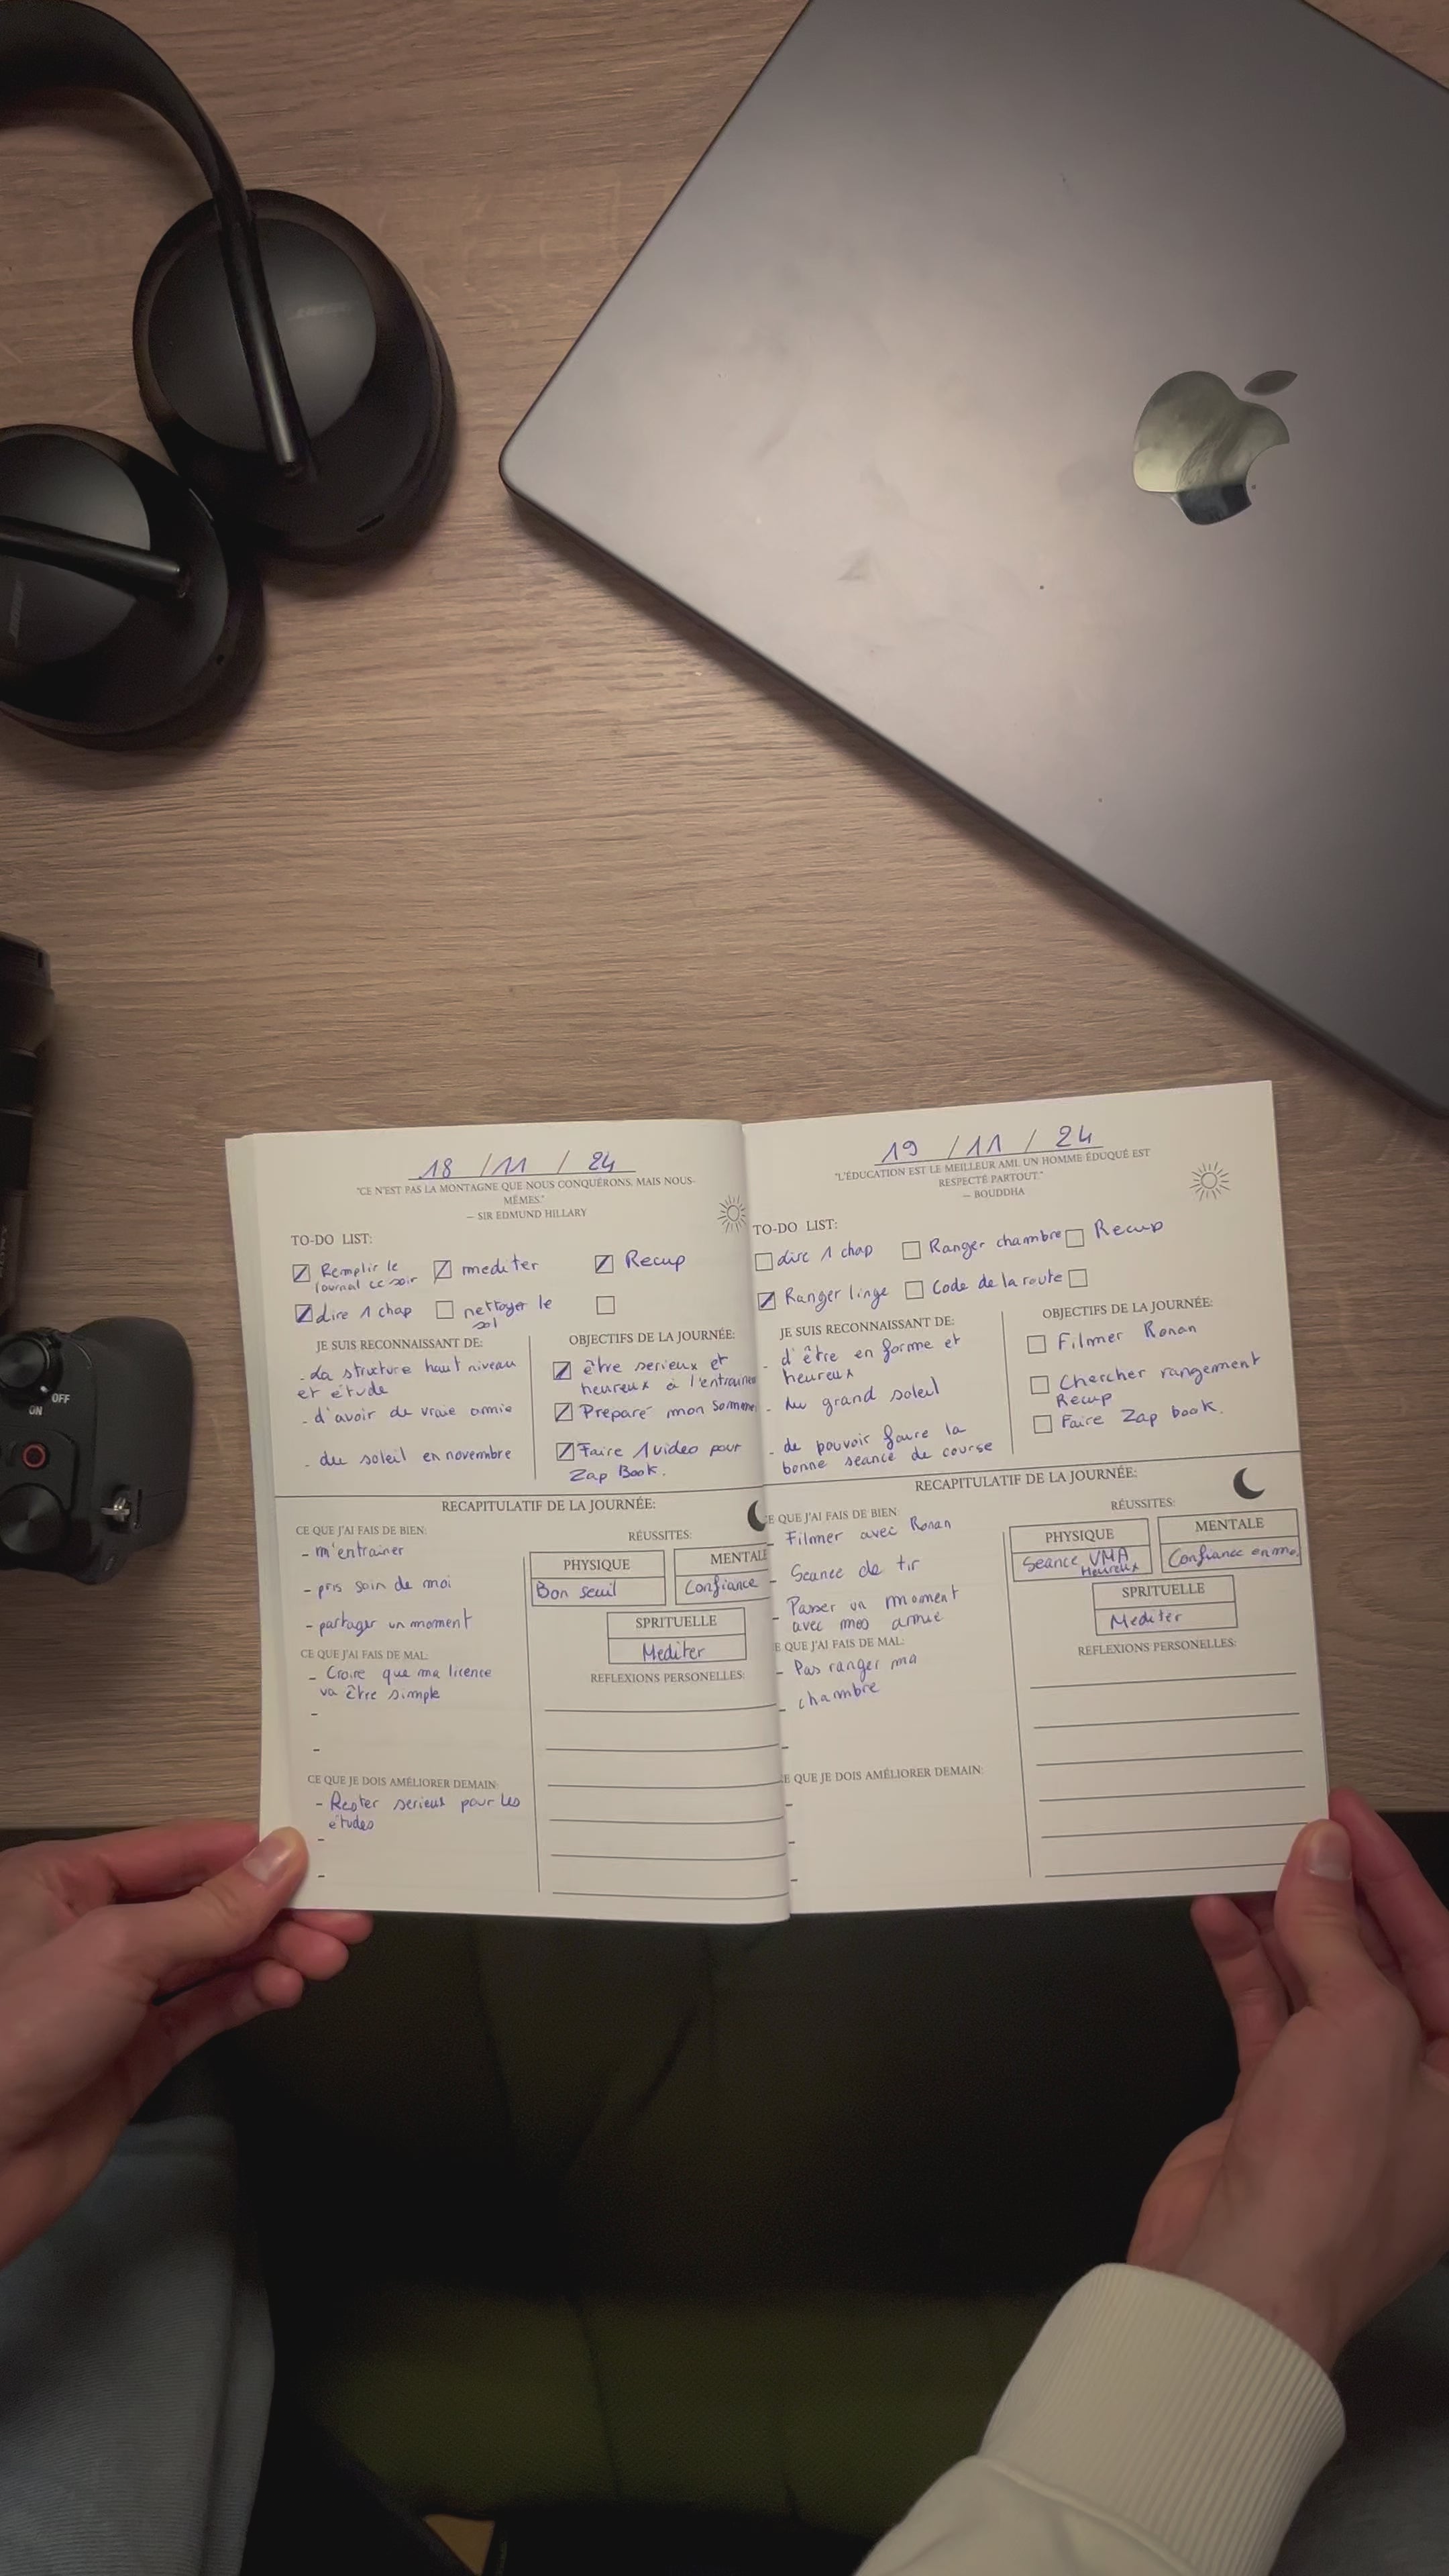 OFF
ON
18 / 11 / 24
"CE N'EST PAS LA MONTAGNE QUE NOUS CONQUÉRONS, MAIS NOUS-
MÊMES."
— SIR EDMUND HILLARY
TO-DO LIST:
Remplir le
journal ce soir
mediter
Recup
Lire 1 chap
nettoyer le
sol
JE SUIS RECONNAISSANT DE:
- La structure haut niveau
et étude
- d'avoir de vraie amie
- du soleil en novembre
OBJECTIFS DE LA JOURNÉE:
être serieux et
heureux à l'entraine
Preparé mon somme
Faire 1 video pour
Zap Book.
RECAPITULATIF DE LA JOURNÉE:
CE QUE J'AI FAIS DE BIEN:
- m'entrainer
- pris soin de moi
- partager un moment
CE QUE J'AI FAIS DE MAL:
- Croire que ma licence
va être simple
-
-
CE QUE JE DOIS AMÉLIORER DEMAIN:
- Rester serieux pour les
études
-
-
RÉUSSITES:
PHYSIQUE
Bon seuil
MENTALE
Confiance
SPRITUELLE
Mediter
REFLEXIONS PERSONELLES:
19 / 11 / 24
"L'ÉDUCATION EST LE MEILLEUR AMI. UN HOMME ÉDUQUÉ EST
RESPECTÉ PARTOUT."
— BOUDDHA
TO-DO LIST:
Lire 1 chap
Ranger chambre
Recup
Ranger linge
Code de la route
JE SUIS RECONNAISSANT DE:
- d'être en forme et
heureux
- du grand soleil
- de pouvoir faire la
bonne seance de course
OBJECTIFS DE LA JOURNÉE:
Filmer Ronan
Chercher rangement
Recup
Faire Zap book.
RECAPITULATIF DE LA JOURNÉE:
CE QUE J'AI FAIS DE BIEN:
- Filmer avec Ronan
- Seance de tir
- Passer un moment
avec mes amie
CE QUE J'AI FAIS DE MAL:
- Pas ranger ma
- chambre
-
CE QUE JE DOIS AMÉLIORER DEMAIN:
-
-
-
RÉUSSITES:
PHYSIQUE
Seance VMA
Heureux
MENTALE
Confiance en mo
SPRITUELLE
Mediter
REFLEXIONS PERSONELLES: